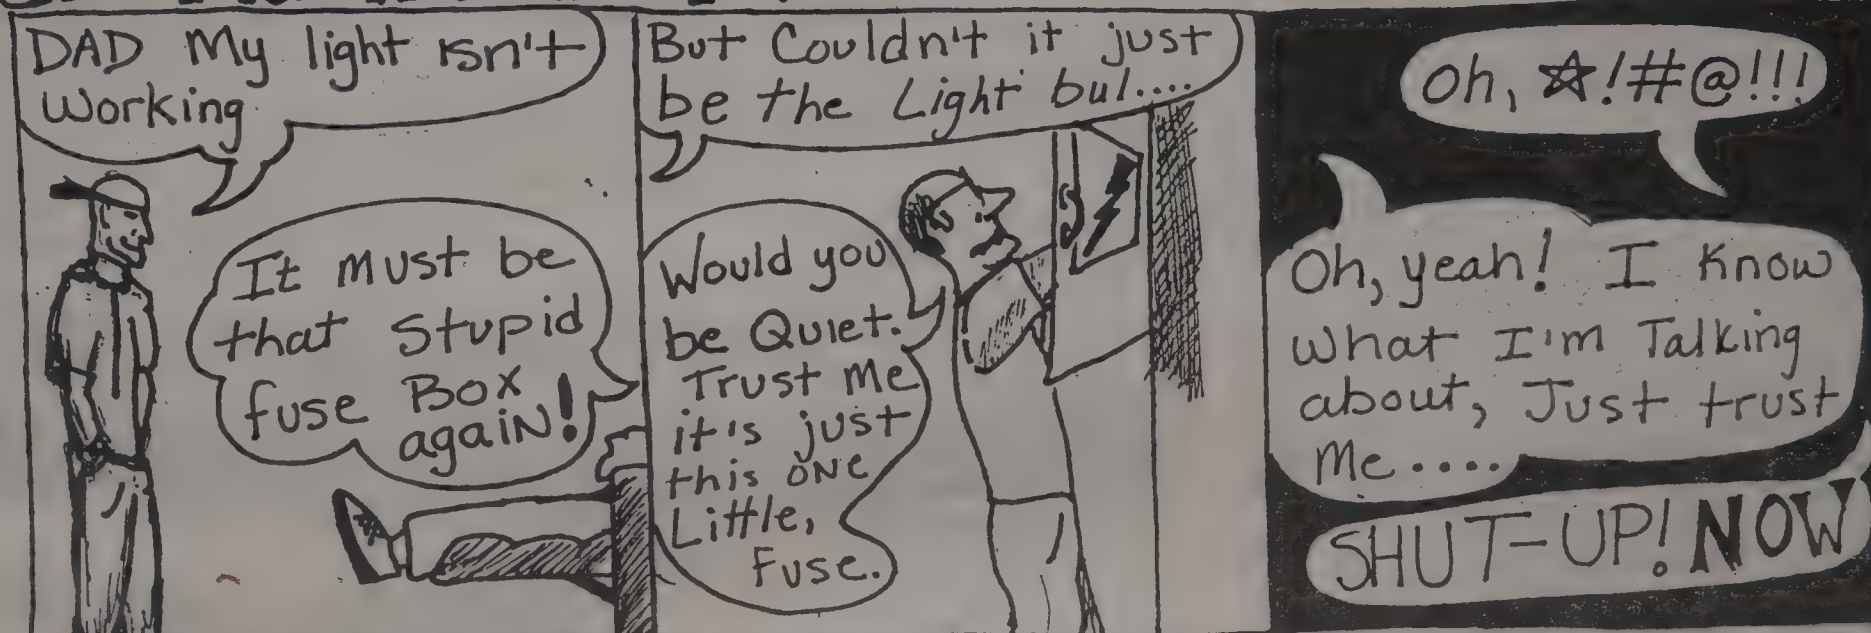 DAD My light isn't
working
It must be
that stupid
fuse Box
again!
But Couldn't it just
be the Light bul....
Would you
be Quiet.
Trust Me
it's just
this one
Little,
Fuse.
Oh, ☆!#@!!!
Oh, yeah! I Know
what I'm Talking
about, Just trust
Me....
SHUT-UP! NOW